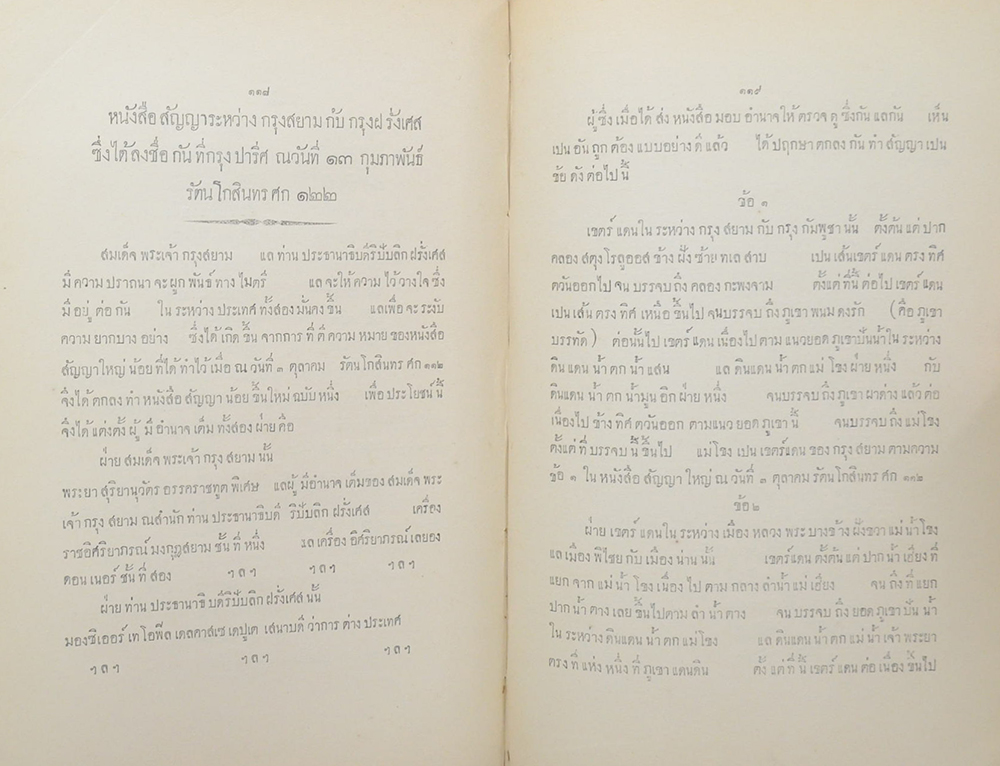 ๑๑๘
หนังสือ สัญญาระหว่าง กรุงสยาม กับ กรุงฝรั่งเศส
ซึ่งได้ลงชื่อ กัน ที่กรุง ปารีศ ณวันที่ ๑๓ กุมภาพันธ์
รัตนโกสินทร ศก ๑๒๒
สมเด็จ พระเจ้า กรุงสยาม แล ท่าน ประธานาธิบดีริปับลิก ฝรั่งเศส
มี ความ ปราถนา จะ ผูก พันธ์ ทาง ไมตรี แล จะให้ ความ ไว้ วางใจ ซึ่ง
มี อยู่ ต่อ กัน ใน ระหว่าง ประเทศ ทั้งสอง มั่นคง ขึ้น แลเพื่อ จะ ระงับ
ความ ยากบาง อย่าง ซึ่งได้ เกิด ขึ้น จากการ ที่ ตี ความ หมาย ของหนังสือ
สัญญาใหญ่ น้อย ที่ได้ ทำไว้ เมื่อ ณ วันที่ ๓ ตุลาคม รัตนโกสินทร ศก ๑๑๒
จึงได้ ตกลง ทำ หนังสือ สัญญา น้อย ขึ้นใหม่ ฉบับ หนึ่ง เพื่อ ประโยชน์ นี้
จึงได้ แต่งตั้ง ผู้ มี อำนาจ เต็ม ทั้งสอง ฝ่าย คือ
ฝ่าย สมเด็จ พระเจ้า กรุง สยาม นั้น
พระยา สุริยานุวัตร อรรคราชทูต พิเศษ แลผู้ มีอำนาจ เต็มของ สมเด็จ พระ
เจ้า กรุง สยาม ณสำนัก ท่าน ประธานาธิบดี ริปับลิก ฝรั่งเศส เครื่อง
ราชอิศริยาภรณ์ มงกุฎสยาม ชั้น ที่ หนึ่ง แล เครื่อง อิศริยาภรณ์ เลยอง
ดอน เนอร์ ชั้น ที่ สอง ฯลฯ ฯลฯ ฯลฯ
ฝ่าย ท่าน ประธานาธิ บดีริปับลิก ฝรั่งเศส นั้น
มองซิเออร์ เท โอฟีล เดลคาสเซ เดปูเต เสนาบดี ว่าการ ต่าง ประเทศ
ฯลฯ ฯลฯ ฯลฯ
๑๑๙
ผู้ ซึ่ง เมื่อ ได้ ส่ง หนังสือ มอบ อำนาจ ให้ ตรวจ ดู ซึ่งกัน แลกัน เห็น
เปน อัน ถูก ต้อง แบบอย่าง ดี แล้ว ได้ ปฤกษา ตกลง กัน ทำ สัญญา เปน
ข้อ ดัง ต่อไป นี้
ข้อ ๑
เขตร์ แดนใน ระหว่าง กรุง สยาม กับ กรุง กัมพูชา นั้น ตั้งต้น แต่ ปาก
คลอง สตุง โรลูออส ข้าง ฝั่ง ซ้าย ทเล สาบ เปน เส้นเขตร์ แดน ตรง ทิศ
ตวันออก ไป จน บรรจบ ถึง คลอง กะพงจาม ตั้งแต่ ที่นี้ ต่อไป เขตร์ แดน
เปน เส้น ตรง ทิศ เหนือ ขึ้นไป จนบรรจบ ถึง ภูเขา พนม ดงรัก (คือ ภูเขา
บรรทัด) ต่อนั้นไป เขตร์ แดน เนื่องไป ตาม แนวยอด ภูเขาปันน้ำใน ระหว่าง
ดิน แดน น้ำ ตก น้ำ แสน แล ดินแดน น้ำ ตก แม่ โขง ฝ่าย หนึ่ง กับ
ดินแดน น้ำ ตก น้ำมูน อีก ฝ่าย หนึ่ง จนบรรจบ ถึง ภูเขา ผาด่าง แล้ว ต่อ
เนื่องไป ข้าง ทิศ ตวันออก ตามแนว ยอด ภูเขา นี้ จนบรรจบ ถึง แม่โขง
ตั้งแต่ ที่ บรรจบ นี้ ขึ้นไป แม่โขง เปน เขตร์แดน ของ กรุง สยาม ตามความ
ข้อ ๑ ใน หนังสือ สัญญา ใหญ่ ณ วันที่ ๓ ตุลาคม รัตนโกสินทร ศก ๑๑๒
ข้อ ๒
ฝ่าย เขตร์ แดนใน ระหว่าง เมือง หลวง พระ บางข้าง ฝั่งขวา แม่ น้ำโขง
แล เมือง พิไชย กับ เมือง น่าน นั้น เขตร์แดน ตั้งต้น แต่ ปาก น้ำ เฮียง ที่
แยก จาก แม่ น้ำ โขง เนื่อง ไป ตาม กลาง ลำน้ำ แม่ เฮียง จน ถึง ที่ แยก
ปาก น้ำ ตาง เลย ขึ้นไปตาม ลำ น้ำ ตาง จน บรรจบ ถึง ยอด ภูเขา ปัน น้ำ
ใน ระหว่าง ดินแดน น้ำ ตก แม่โขง แล ดินแดน น้ำ ตก แม่ น้ำ เจ้า พระยา
ตรง ที่ แห่ง หนึ่ง ที่ ภูเขา แดนดิน ตั้ง แต่ ที่ นี้ เขตร์ แดน ต่อ เนื่อง ขึ้นไป